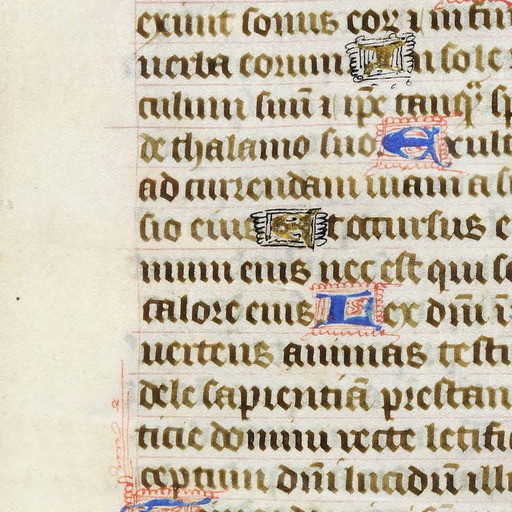 exiuit sonus eoꝝ ⁊ in fin
uerba eorum In sole
culum suū ⁊ ip̄e tanqͣ sp
de thalamo suo Exult
ad currendam uiam a s
sio eius Et occursus e
mum eius nec est qui s
calore eius Lex dn̄i i
uertens animas testi
dele sapientiā prestan
ticie domini recte letifi
ceptum dn̄i lucidū illu